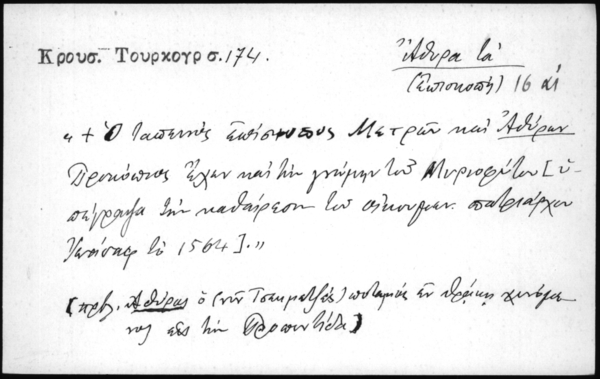 Κρουσ. Τουρκογρ σ.174.
Ἄθυρα τὰ
(Ἐπισκοπὴ) 16 αἰ
« + Ὁ ταπεινὸς ἐπίσκοπος Μετρῶν καὶ Ἀθύρων
Προκόπιος ἔχων καὶ τὴν γνώμην τοῦ Μυριοφύτου [ὑ-
πέγραψα τὴν καθαίρεσιν τοῦ οἰκουμεν. πατριάρχου
Ἰωάσαφ τῷ 1564].»
(πρβ. Ἀθύρας ὁ (νῦν Τσεκμετζὲς) ποταμὸς ἐν Θράκῃ χυνόμε-
νος εἰς τὴν Προποντίδα)